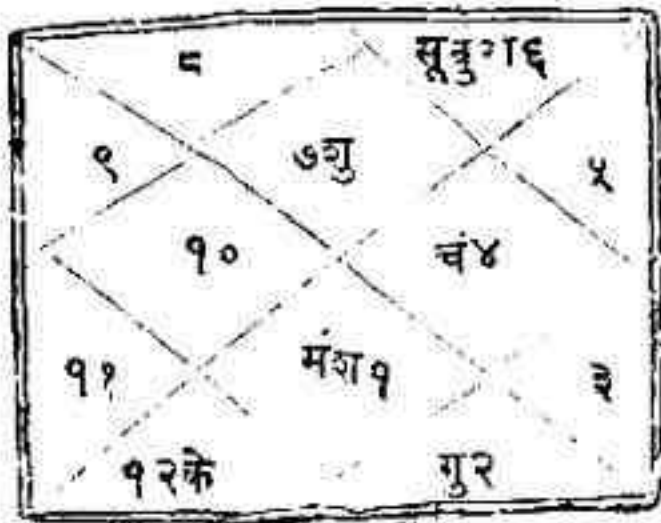 ८ सूबुरा६
९ ७शु ५
१० चं४
११ मंश१ ३
१२के गु२